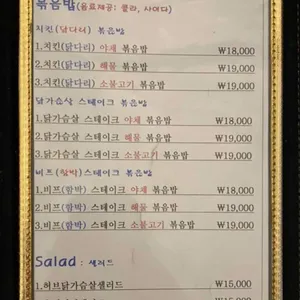 볶음밥(음료제공: 콜라, 사이다)
치킨(닭다리) 볶음밥
1.치킨(닭다리) 야채 볶음밥 ₩18,000
2.치킨(닭다리) 해물 볶음밥 ₩19,000
3.치킨(닭다리) 소불고기 볶음밥 ₩19,000
닭가슴살 스테이크 볶음밥
1.닭가슴살 스테이크 야채 볶음밥 ₩18,000
2.닭가슴살 스테이크 해물 볶음밥 ₩19,000
3.닭가슴살 스테이크 소불고기 볶음밥 ₩19,000
비프(함박) 스테이크 볶음밥
1.비프(함박) 스테이크 야채 볶음밥 ₩18,000
2.비프(함박) 스테이크 해물 볶음밥 ₩19,000
3.비프(함박) 스테이크 소불고기 볶음밥 ₩19,000
Salad : 샐러드
1.허브닭가슴살샐러드 ₩15,000
₩15,000